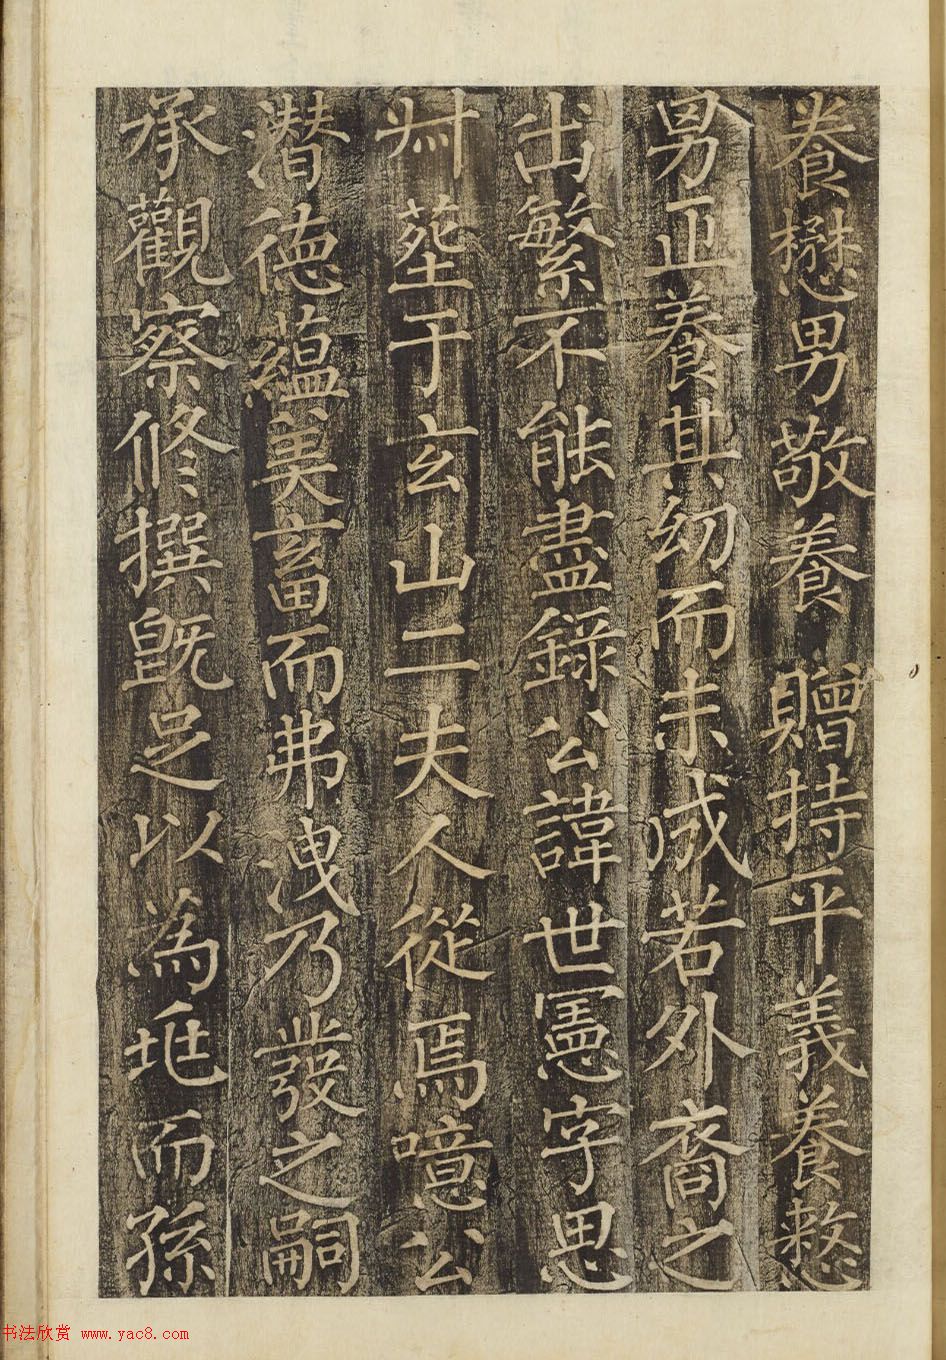 養懋男敬養贈持平義養
男正養其幼而未成若外裔之
出繁不能盡錄公諱世憲字思
叔葬于玄山二夫人從焉噫公
潛德蘊美畜而弗洩乃發之嗣
承觀察修撰旣足以為而孫
书法欣赏 www.yac8.com